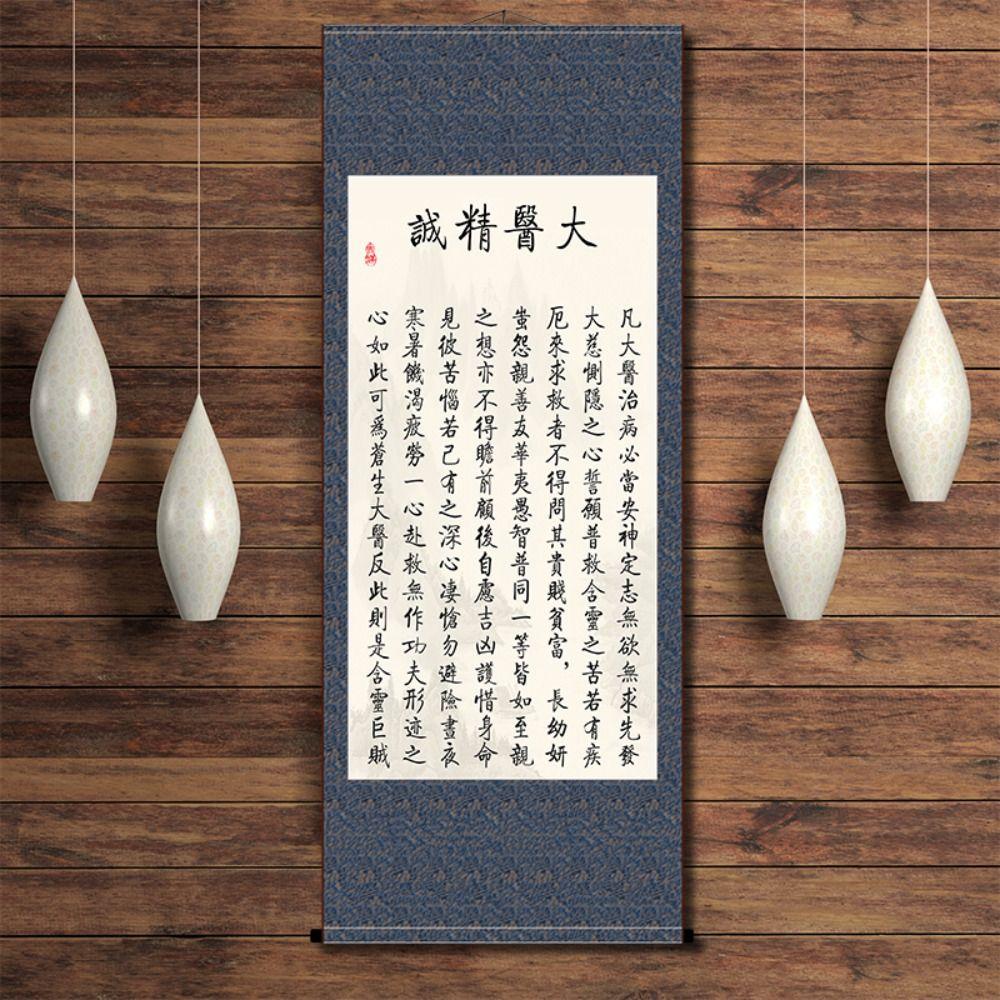 大醫精誠
凡大醫治病必當安神定志無欲無求先發
大慈惻隱之心誓願普救含靈之苦若有疾
厄來求救者不得問其貴賤貧富，長幼妍
蚩怨親善友華夷愚智普同一等皆如至親
之想亦不得瞻前顧後自慮吉凶護惜身命
見彼苦惱若己有之深心凄愴勿避險晝夜
寒暑饑渴疲勞一心赴救無作功夫形迹之
心如此可為蒼生大醫反此則是含靈巨賊